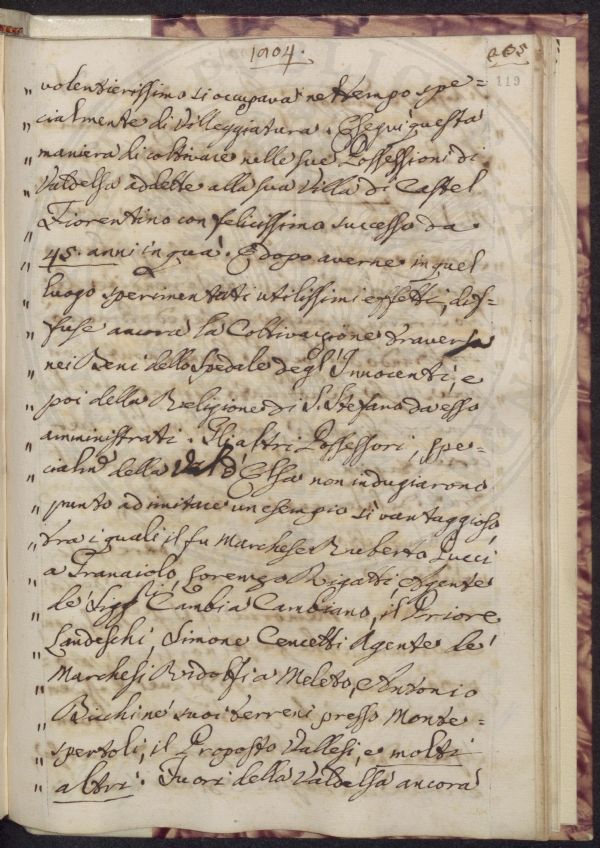 1904.
119
„ volentierissimo si occupava ne tempo spe=
„ cialmente di Villeggiatura. Eseguì questa
„ maniera di coltivare nelle sue Possessioni di
„ Valdelsa addette alla sua Villa di Castel
„ Fiorentino con felicissimo successo da
„ 45. anni in quà. E dopo averne in quel
„ luogo sperimentati utilissimi effetti, dif=
„ fuse ancora la Coltivazione traversa
„ nei Beni dello Spedale degl' Innocenti, e
„ poi della Religione di S. Stefano da esso
„ amministrati. Gl'altri Possessori, spe=
„ cialm.e della Val d' Elsa non indugiarono
„ punto ad imitare un esempio sì vantaggioso,
„ tra i quali il fu Marchese Ruberto Pucci
„ a Granaiolo, Lorenzo Rigatti, Agente
„ de' Sigg.ri Cambi a Cambiano, il Priore
„ Landeschi, Simone Cencetti Agente de'
„ Marchesi Ridolfi a Meleto, Antonio
„ Bichi ne' suoi terreni presso Monte=
„ spertoli, il Proposto Vallesi, e molti
„ altri. Fuori della Valdelsa ancora